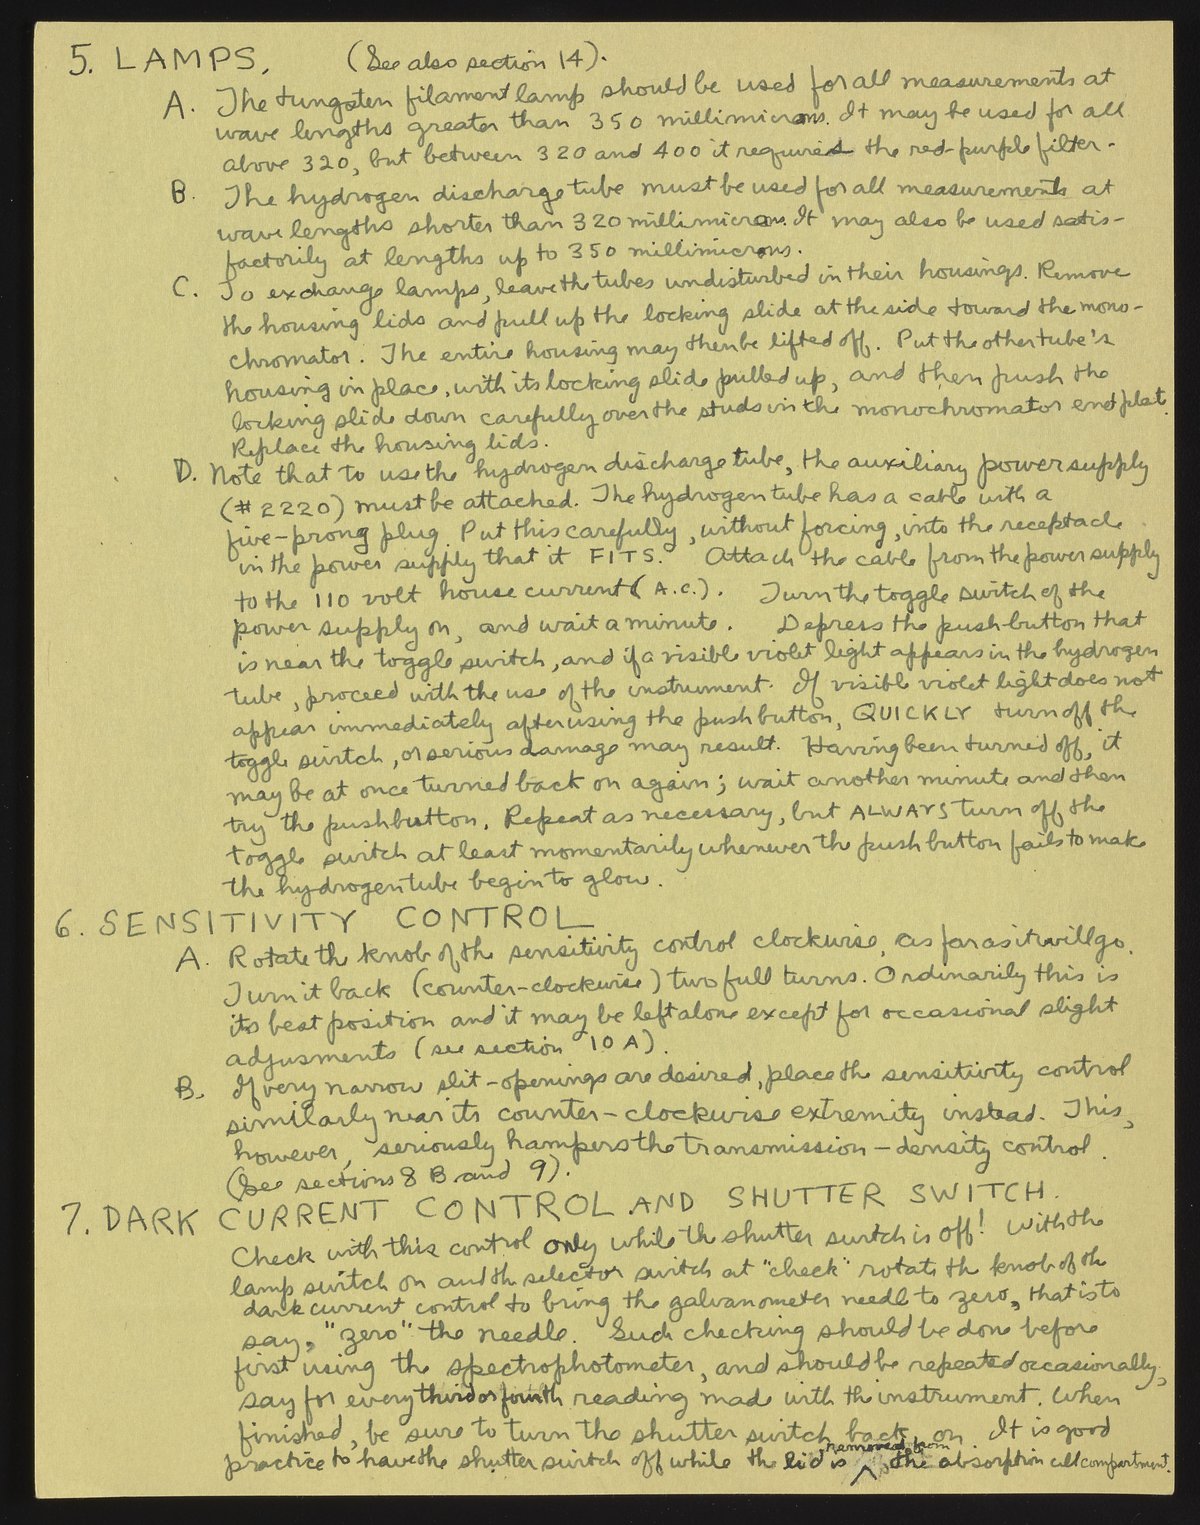 5. LAMPS. (See also section 14).
A. The tungsten filament lamp should be used for all measurements at
wave lengths greater than 350 millimicrons. It may be used for all
above 320, but between 320 and 400 it requires the red-purple filter.
B. The hydrogen discharge tube must be used for all measurements at
wave lengths shorter than 320 millimicrons. It may also be used satis-
factorily at lengths up to 350 millimicrons.
C. To exchange lamps, leave the tubes undisturbed in their housings. Remove
the housing lids and pull up the locking slide at the side toward the mono-
chromator. The entire housing may then be lifted off. Put the other tube's
housing in place, with its locking slide pulled up, and then push the
locking slide down carefully over the studs in the monochromator end plat.
Replace the housing lids.
D. Note that to use the hydrogen discharge tube, the auxiliary power supply
(#2220) must be attached. The hydrogen tube has a cable with a
five-prong plug. Put this carefully, without forcing, into the receptacle
in the power supply that it FITS. Attach the cable from the power supply
to the 110 volt house current (A.C.). Turn the toggle switch of the
power supply on, and wait a minute. Depress the push-button that
is near the toggle switch, and if a visible violet light appears in the hydrogen
tube, proceed with the use of the instrument. If visible violet light does not
appear immediately after using the push button, QUICKLY turn off the
toggle switch, or serious damage may result. Having been turned off, it
may be at once turned back on again; wait another minute and then
try the pushbutton. Repeat as necessary, but ALWAYS turn off the
toggle switch at least momentarily whenever the push button fails to make
the hydrogen tube begin to glow.
6. SENSITIVITY CONTROL
A. Rotate the knob of the sensitivity control clockwise as far as it will go.
Turn it back (counter-clockwise) two full turns. Ordinarily this is
its best position and it may be left alone except for occasional slight
adjusments (see section 10 A).
B. If very narrow slit-openings are desired, place the sensitivity control
similarly near its counter-clockwise extremity instead. This,
however, seriously hampers the transmission-density control.
(See sections 8 B and 9).
7. DARK CURRENT CONTROL AND SHUTTER SWITCH.
Check with this control only while the shutter switch is off! With the
lamp switch on and the selector switch at "check" rotate the knob of the
dark current control to bring the galvanometer needle to zero, that is to
say, "zero" the needle. Such checking should be done before
first using the spectrophotometer, and should be repeated occasionally,
say for every third or fourth reading made with the instrument. When
finished, be sure to turn the shutter switch back on. It is good
practice to have the shutter switch off while the lid is removed from the absorption cell compartment.